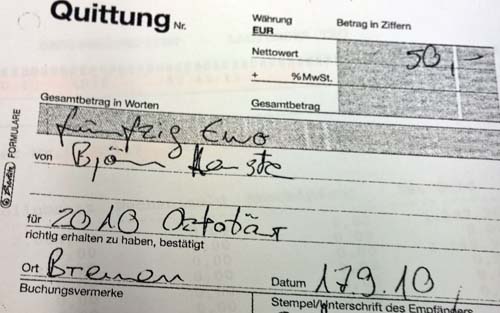 Quittung Nr.
Währung
EUR
Betrag in Ziffern
Nettowert
50,-
+ % MwSt.
Gesamtbetrag in Worten
Gesamtbetrag
fünfzig Euro
von Björn
für 2010 Octobär
richtig erhalten zu haben, bestätigt
Ort Bremen
Datum 17.9.10
Buchungsvermerke
Stempel/Unterschrift des Empfängers
FORMULARE